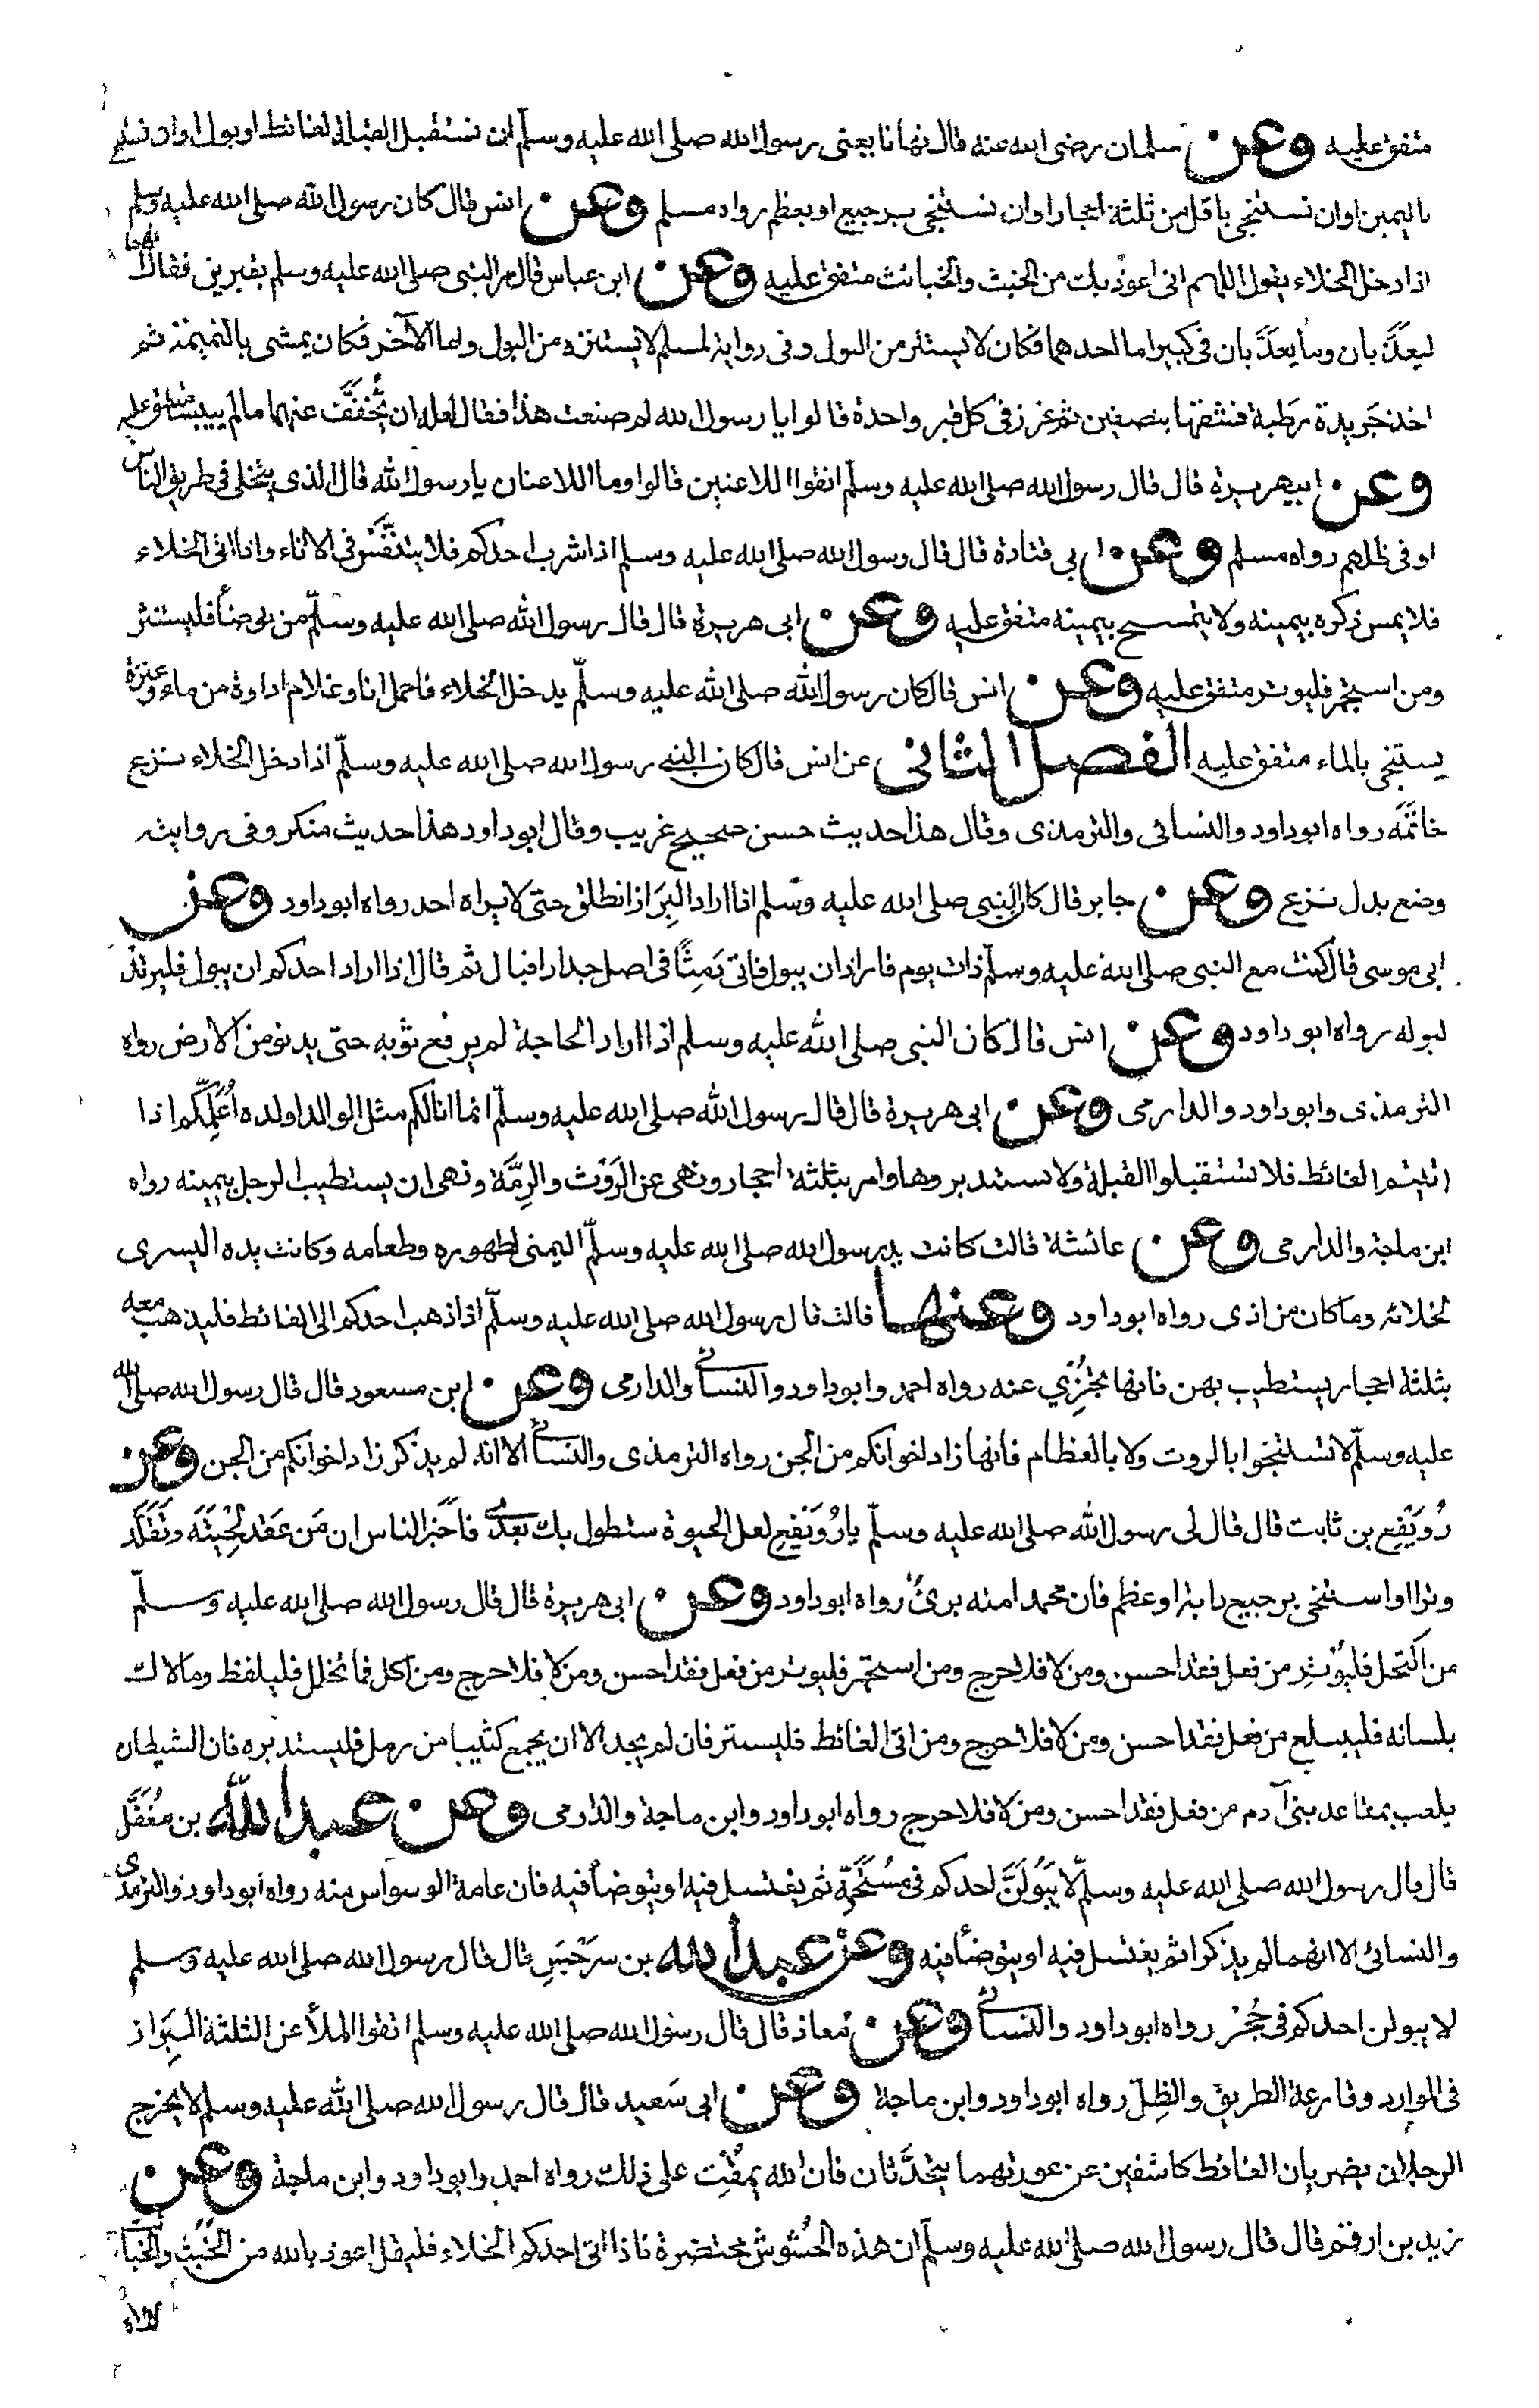 متفق عليه وعن سلمان رضى الله عنه قال نهانا يعنى رسول الله صلى الله عليه وسلم ان نستقبل القبلة لغائط او بول او ان نستنجى
باليمين او ان نستنجى باقل من ثلثة احجار او ان نستنجى برجيع او بعظم رواه مسلم وعن انس قال كان رسول الله صلى الله عليه وسلم
اذا دخل الخلاء يقول اللهم انى اعوذ بك من الخبث والخبائث متفق عليه وعن ابن عباس قال مر النبى صلى الله عليه وسلم بقبرين فقال انهما
ليعذبان وما يعذبان فى كبير اما احدهما فكان لا يستتر من البول وفى رواية لمسلم لا يستنزه من البول واما الآخر فكان يمشى بالنميمة ثم
اخذ جريدة رطبة فشقها بنصفين ثم غرز فى كل قبر واحدة قالوا يا رسول الله لم صنعت هذا فقال لعله ان يُخَفَّفَ عنهما ما لم ييبسا متفق عليه
وعن ابيهريرة قال قال رسول الله صلى الله عليه وسلّم اتقوا اللاعنين قالوا وما اللاعنان يا رسول الله قال الذى يتخلى فى طريق الناس
او فى ظلهم رواه مسلم وعن ابى قتادة قال قال رسول الله صلى الله عليه وسلم اذا شرب احدكم فلا يتنفَّس فى الاناء واذا اتى الخلاء
فلا يمس ذكره بيمينه ولا يتمسح بيمينه متفق عليه وعن ابى هريرة قال قال رسول الله صلى الله عليه وسلّم من توضأ فليستنثر
ومن استجمر فليوتر متفق عليه وعن انس قال كان رسول الله صلى الله عليه وسلّم يدخل الخلاء فاحمل انا وغلام اداوة من ماء وعنزة
يستنجى بالماء متفق عليه الفصل الثانى عن انس قال كان النبى رسول الله صلى الله عليه وسلّم اذا دخل الخلاء نزع
خاتَمَه رواه ابو داود والنسائى والترمذى وقال هذا حديث حسن صحيح غريب وقال ابو داود هذا حديث منكر وفى روايته
وضع بدل نزع وعن جابر قال كان النبى صلى الله عليه وسلم اذا اراد البِرَاز انطلق حتى لا يراه احد رواه ابو داود وعن
ابى موسى قال كنت مع النبى صلى الله عليه وسلّم ذات يوم فاراد ان يبول فاتى دَمِثًا فى اصل جدار فبال ثم قال اذا اراد احدكم ان يبول فليرتد
لبوله رواه ابو داود وعن انس قال كان النبى صلى الله عليه وسلم اذا اراد الحاجة لم يرفع ثوبه حتى يدنو من الارض رواه
الترمذى وابو داود والدارمى وعن ابى هريرة قال قال رسول الله صلى الله عليه وسلّم انما انا لكم مثل الوالد لولده اُعَلِّمُكم اذا
اتيتم الغائط فلا تستقبلوا القبلة ولا تستدبروها وامر بثلثة احجار ونهى عن الرَوْث والرِمَّة ونهى ان يستطيب الرجل بيمينه رواه
ابن ماجة والدارمى وعن عائشة قالت كانت يد رسول الله صلى الله عليه وسلّم اليمنى لطهوره وطعامه وكانت يده اليسرى
لخلائه وما كان من اذى رواه ابو داود وعنها قالت قال رسول الله صلى الله عليه وسلّم اذا ذهب احدكم الى الغائط فليذهب معه
بثلثة احجار يستطيب بهن فانها تجزئ عنه رواه احمد وابو داود والنسائى والدارمى وعن ابن مسعود قال قال رسول الله صلى الله
عليه وسلّم لا تستنجوا بالروث ولا بالعظام فانها زاد اخوانكم من الجن رواه الترمذى والنسائى الا انه لم يذكر زاد اخوانكم من الجن وعن
رُوَيفِع بن ثابت قال قال لى رسول الله صلى الله عليه وسلّم يا رُوَيفِع لعل الحيوة ستطول بك بعدى فاخبر الناس ان مَن عَقد لِحيَتَه وتَقَلَّد
وترا او استنجى برجيع دابة او عظم فان محمدا منه برئ رواه ابو داود وعن ابى هريرة قال قال رسول الله صلى الله عليه وسلّم
من اكتحل فليوتر من فعل فقد احسن ومن لا فلا حرج ومن استجمر فليوتر من فعل فقد احسن ومن لا فلا حرج ومن اكل فما تخلل فليلفظ وما لاك
بلسانه فليبتلع من فعل فقد احسن ومن لا فلا حرج ومن اتى الغائط فليستتر فان لم يجد الا ان يجمع كثيبا من رمل فليستدبره فان الشيطان
يلعب بمقاعد بنى آدم من فعل فقد احسن ومن لا فلا حرج رواه ابو داود وابن ماجة والدارمى وعن عبد الله بن مُغَفَّل
قال قال رسول الله صلى الله عليه وسلّم لا يَبُولَنَّ احدكم فى مُستَحَمِّه ثم يغتسل فيه او يتوضأ فيه فان عامة الوسواس منه رواه ابو داود والترمذى
والنسائى الا انهما لم يذكرا ثم يغتسل فيه او يتوضأ فيه وعن عبد الله بن سرجس قال قال رسول الله صلى الله عليه وسلم
لا يبولن احدكم فى جُحْر رواه ابو داود والنسائى وعن معاذ قال قال رسول الله صلى الله عليه وسلم اتقوا الملأعن الثلثة البِرَاز
فى الموارد وقارعة الطريق والظِلّ رواه ابو داود وابن ماجة وعن ابى سَعيد قال قال رسول الله صلى الله عليه وسلم لا يخرج
الرجلان يضربان الغائط كاشفين عن عورتهما يتحدَّثان فان الله يمقُت على ذلك رواه احمد وابو داود وابن ماجة وعن
زيد بن ارقم قال قال رسول الله صلى الله عليه وسلّم ان هذه الحُشُوش محتضرة فاذا اتى احدكم الخلاء فليقل اعوذ بالله من الخُبُث والخبائث
رواه